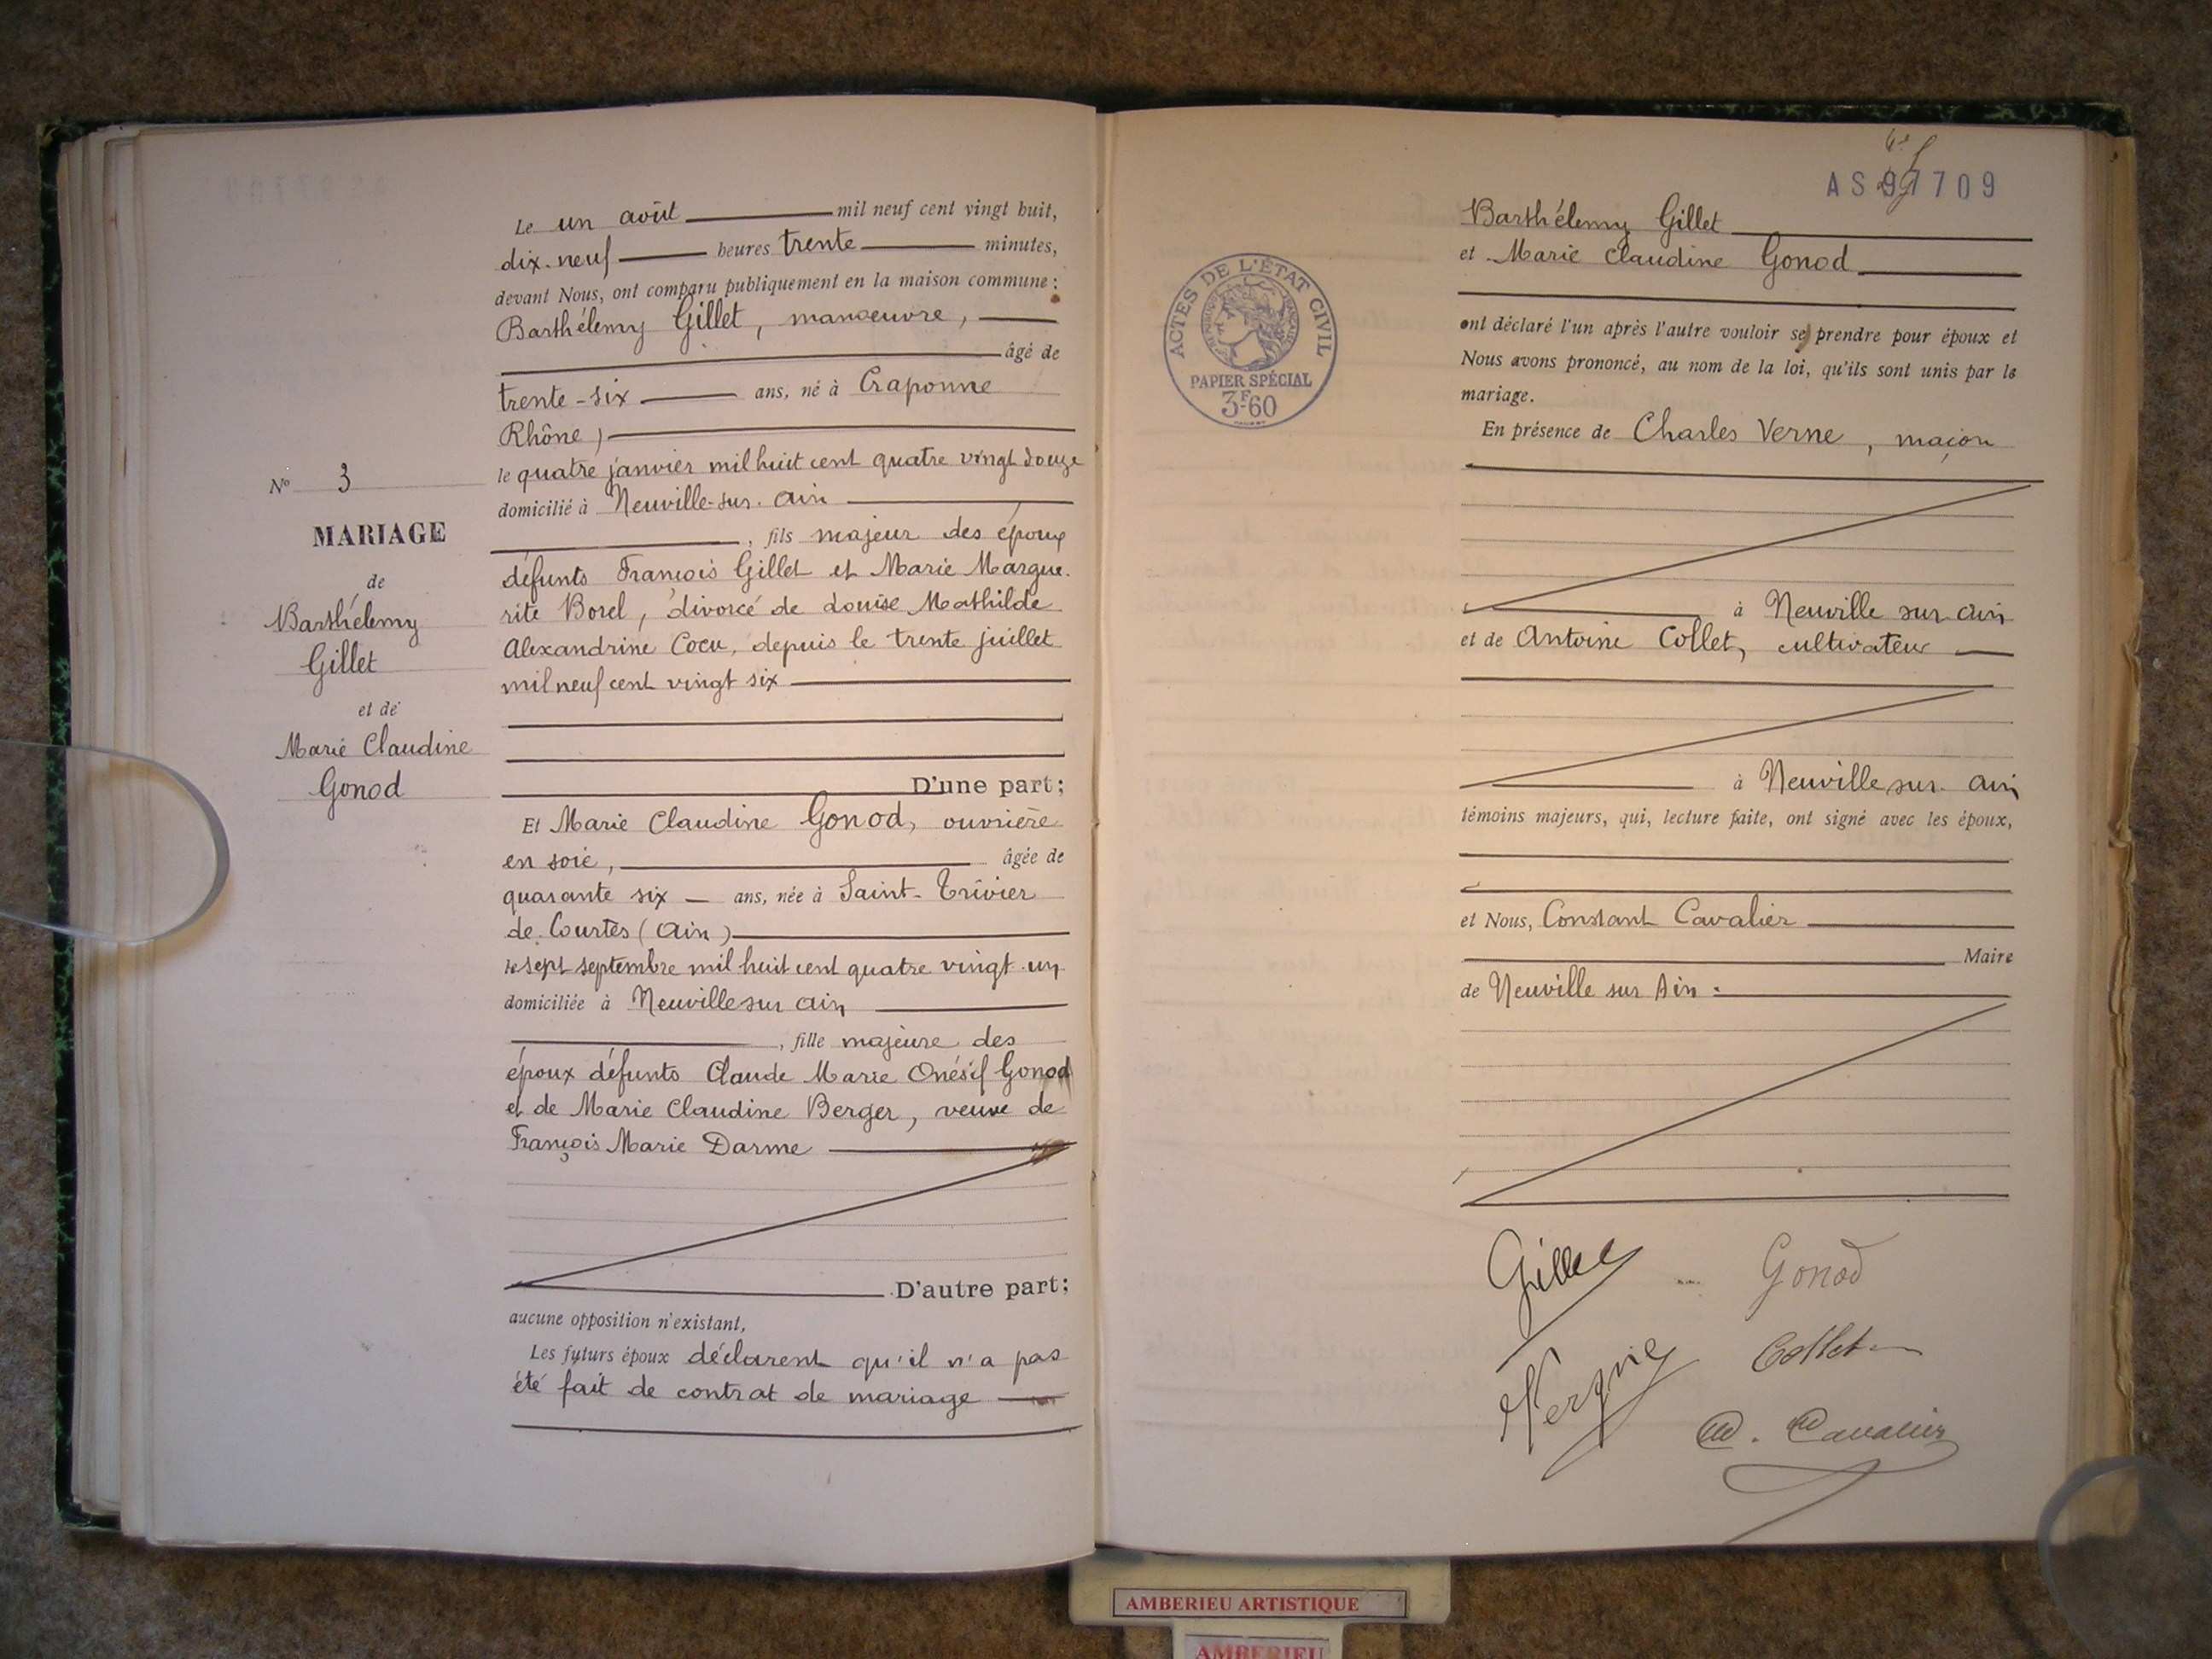 Le un août mil neuf cent vingt huit,
dix-neuf heures trente minutes,
devant Nous, ont comparu publiquement en la maison commune :
Barthélemy Gillet, manoeuvre,
âgé de
trente-six ans, né à Craponne
Rhône)
le quatre janvier mil huit cent quatre vingt douze
domicilié à Neuville-sur-Ain
, fils majeur des époux
défunts François Gillet et Marie Margue-
rite Borel, divorcé de Louise Mathilde
Alexandrine Cocu, depuis le trente juillet
mil neuf cent vingt six
D'une part;
Et Marie Claudine Gonod, ouvrière
en soie, âgée de
quarante six ans, née à Saint-Trivier
de Courtes (Ain)
le sept septembre mil huit cent quatre vingt-un
domiciliée à Neuville sur Ain
, fille majeure des
époux défunts Claude Marie Onésif Gonod
et de Marie Claudine Berger, veuve de
François Marie Darme
D'autre part;
aucune opposition n'existant,
Les futurs époux déclarent qu'il n'a pas
été fait de contrat de mariage
N° 3
MARIAGE
de
Barthélemy
Gillet
et de
Marie Claudine
Gonod
AS 97709
ACTES DE L'ÉTAT CIVIL
PAPIER SPÉCIAL
3F60
Barthélemy Gillet
et Marie Claudine Gonod
ont déclaré l'un après l'autre vouloir se prendre pour époux et
Nous avons prononcé, au nom de la loi, qu'ils sont unis par le
mariage.
En présence de Charles Verne, maçon
à Neuville sur Ain
et de Antoine Collet, cultivateur
à Neuville sur Ain
témoins majeurs, qui, lecture faite, ont signé avec les époux,
et Nous, Constant Cavalier
Maire
de Neuville sur Ain.
Gillet Gonod
Collet
Cavalier
AMBERIEU ARTISTIQUE
AMBERIEU